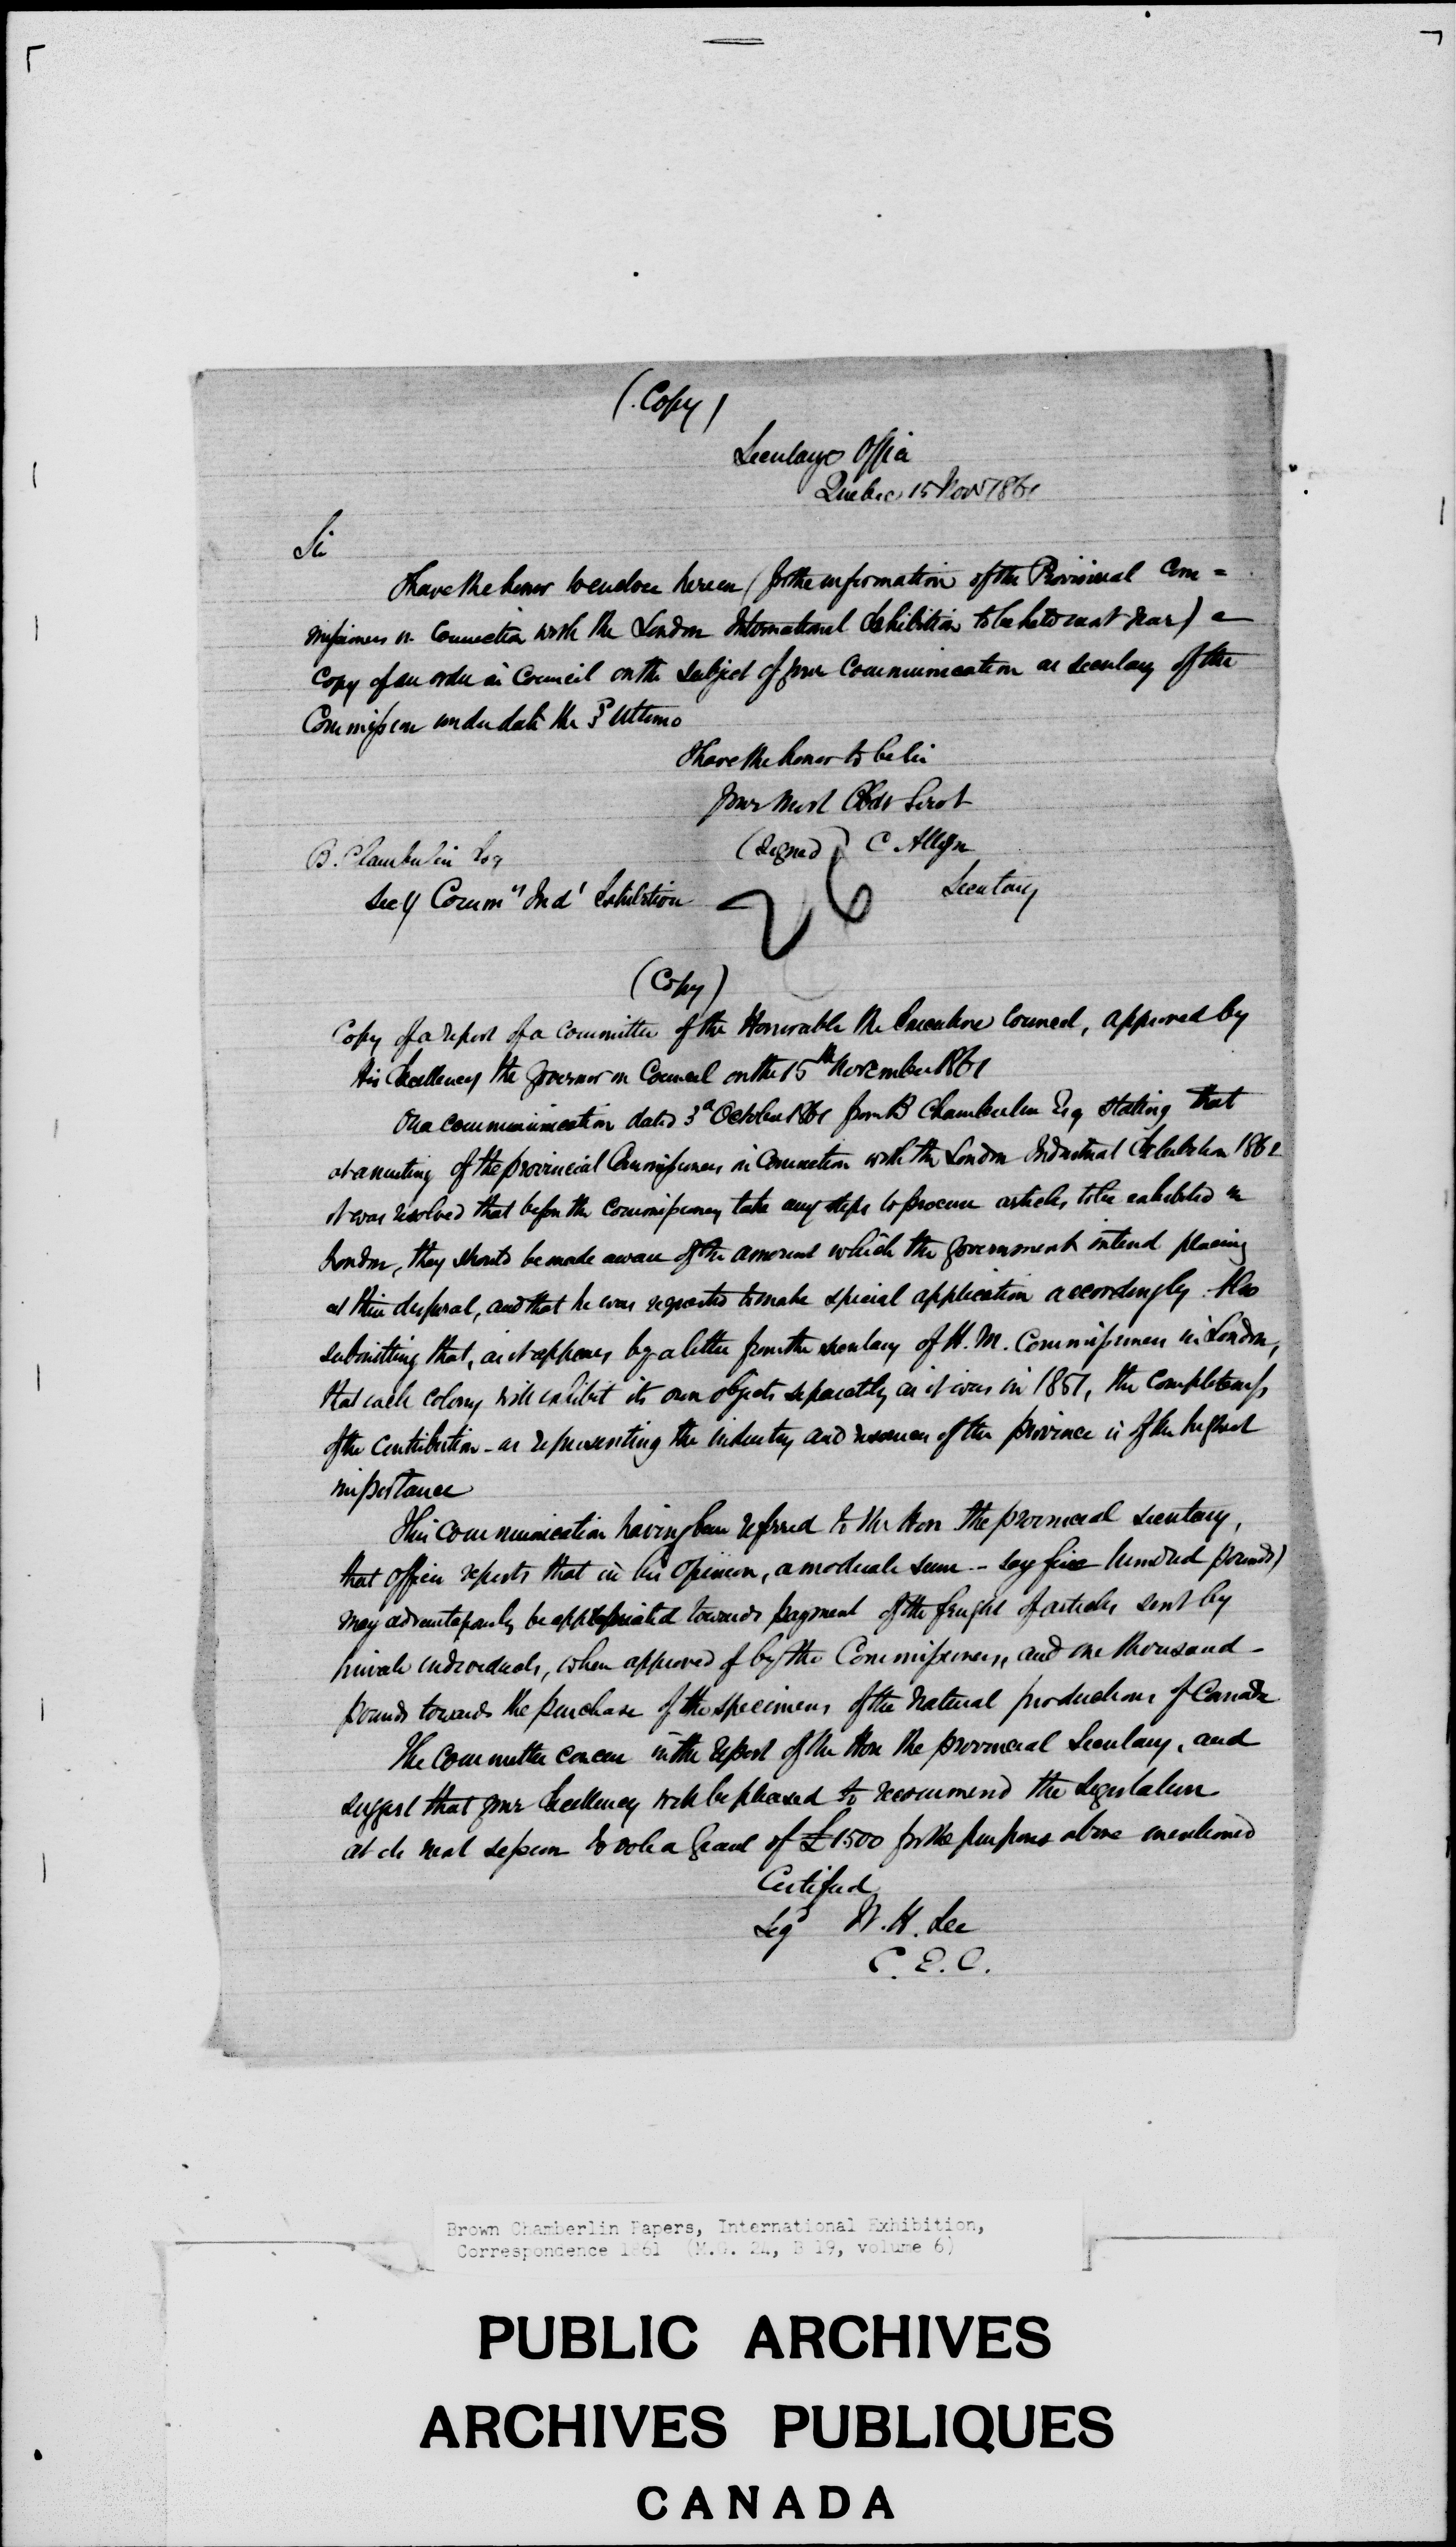 (Copy)
Secretarys Office
Quebec 15 Nov 1861
Sir
I have the honor to enclose herein (for the information of the Provincial Com=
missioners in Connection with the London International Exhibition to be held next year) a
Copy of an order in Council on the subject of your Communication as secretary of the
Commission under date the 3d Ultimo
I have the honor to be Sir
your most Obdt Servt
(Signed) C Alleyn
Secretary
B. Chamberlin Esq
Secy Commrs Indl Exhibition
26
(Copy)
Copy of a report of a Committee of the Honorable the Executive Council, approved by
His Excellency the Governor in Council on the 15th November 1861
On a communication dated 3d October 1861 from B Chamberlin Esq stating that
at a meeting of the provincial Commissioners in Connection with the London Industrial Exhibition 1862
it was resolved that before the commissioners take any steps to procure articles to be exhibited in
London, they should be made aware of the amount which the Government intend placing
at their disposal, and that he was requested to make special application accordingly. Also
submitting that, as it appears by a letter from the secretary of H. M. Commissioners in London,
that each colony will exhibit its own objects separately as it was in 1851, the completeness
of the contribution - as representing the industry and resources of the province is of the highest
importance
This Communication having been referred to the Hon the provincial secretary,
that officer reports that in his opinion, a moderate sum - say five hundred pounds)
may advantageously be appropriated towards payment of the freight of articles sent by
private individuals, when approved of by the Commissioners, and one thousand -
pounds towards the purchase of the specimens of the natural productions of Canada
The Committee concur in the report of the Hon the provincial Secretary, and
suggest that your Excellency will be pleased to recommend the Legislature
at its next session to vote a Grant of £1500 for the purposes above mentioned
Certified
Sigd W. H. Lee
C. E. C.
Brown Chamberlin Papers, International Exhibition,
Correspondence 1861 (M.G. 24, B 19, volume 6)
PUBLIC ARCHIVES
ARCHIVES PUBLIQUES
CANADA